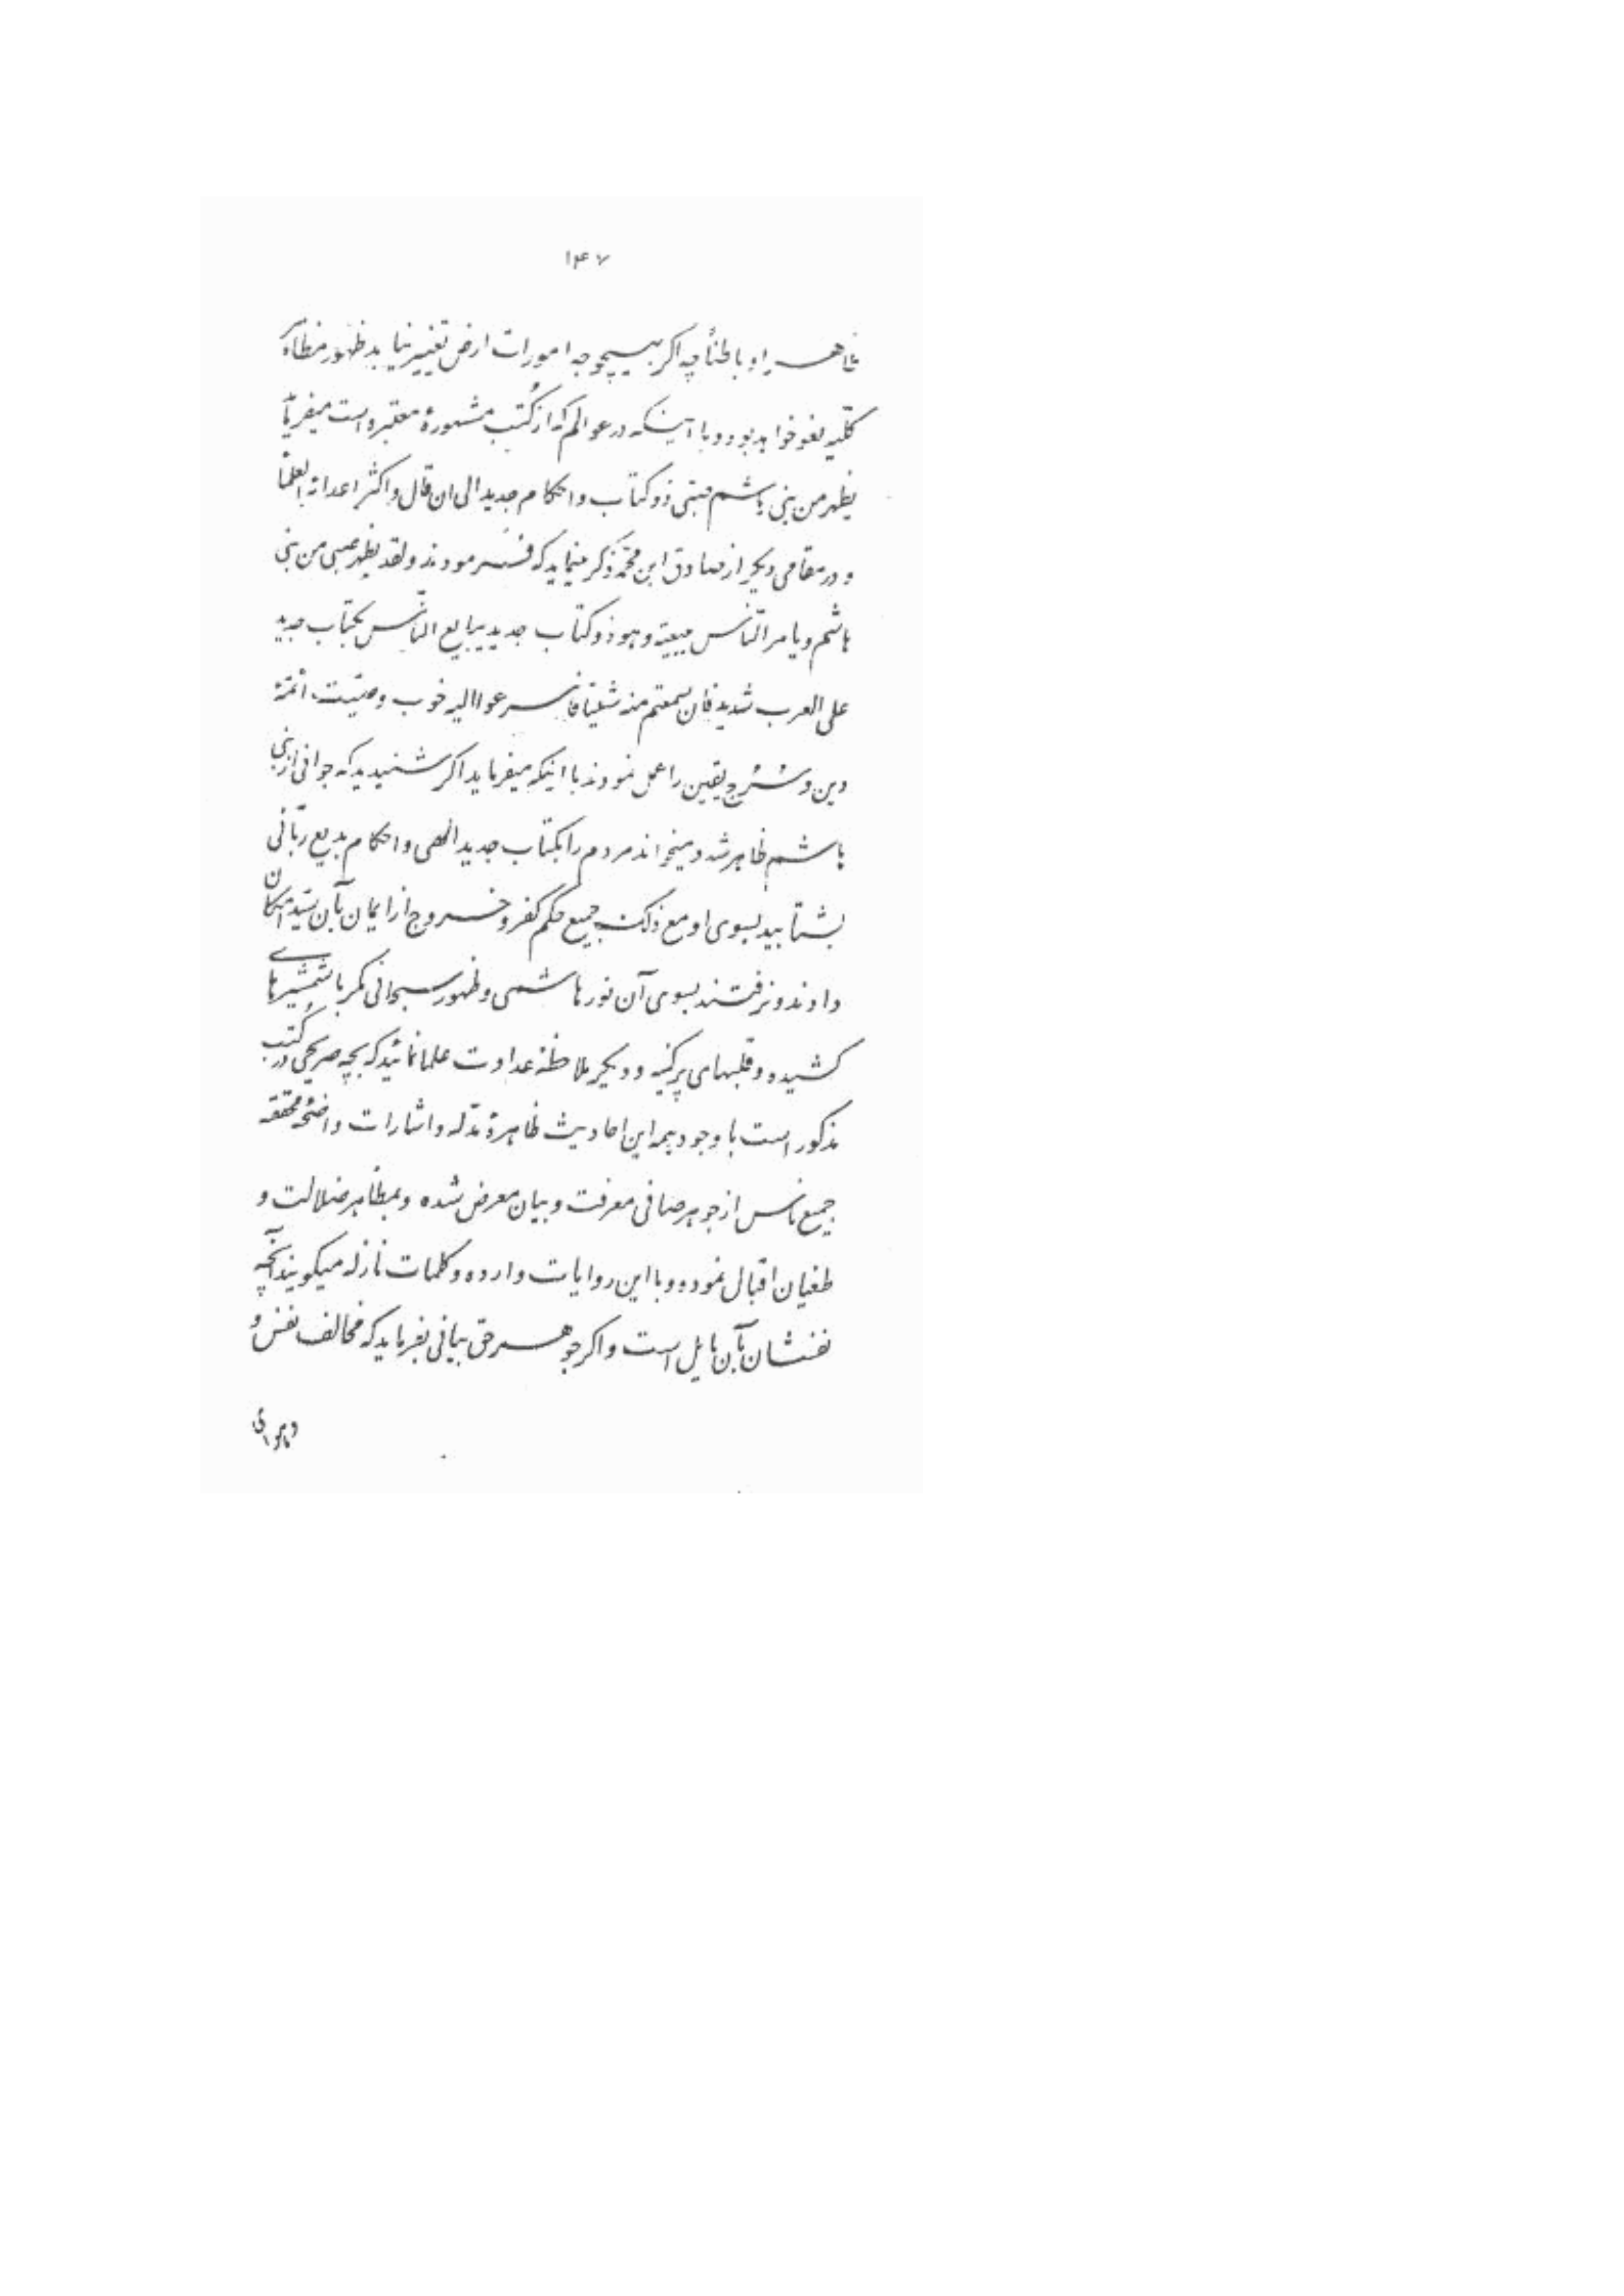 ۱۴۷
ظاهراً و باطناً چه اگر بهیچوجه امورات ارض تغییر ننماید ظهور مظاهر
کلّیه لغو خواهد بود و با اینکه در عوالم که از کُتب مشهورهٔ معتبره است میفرماید
یظهر من بنی هاشم صبیّ ذو کتاب و احکام جدید الی ان قال و اکثر اعدائه العلماء
و در مقامی دیگر از صادق ابن محمّد ذکر مینماید که فرمودند و لقد یظهر صبی من بنی
هاشم و یامر النّاس ببیعته و هو ذو کتاب جدید یبایع النّاس بکتاب جدید
علی العرب شدید فان سمعتم منه شیئاً فاسرعوا الیه خوب وصیّت ائمّهٔ
دین و سُرُج یقین را عمل نمودند با اینکه میفرماید اگر شنیدید که جوانی از بنی
هاشم ظاهر شد و میخواند مردم را بکتاب جدید الهی و احکام بدیع ربّانی
بشتابید بسوی او مع ذلک جمیع حکم کفر و خروج از ایمان بآن سیّد امکان
دادند و نرفتند بسوی آن نور هاشمی و ظهور سبحانی مگر با شمشیرهای
کشیده و قلبهای پرکینه و دیگر ملاحظهٔ عداوت علما نمائید که بچه صریحی در کُتب
مذکور است با وجود همه این احادیث ظاهرهٔ مدّله و اشارات واضحهٔ محققه
جمیع ناس از جوهر صافی معرفت و بیان معرض شده و بمظاهر ضلالت و
طغیان اقبال نموده و با این روایات وارده و کلمات نازله میگویند آنچه
نفسشان بآن مایل است و اگر جوهر حق بیانی بفرماید که مخالف نفس و
و هوای